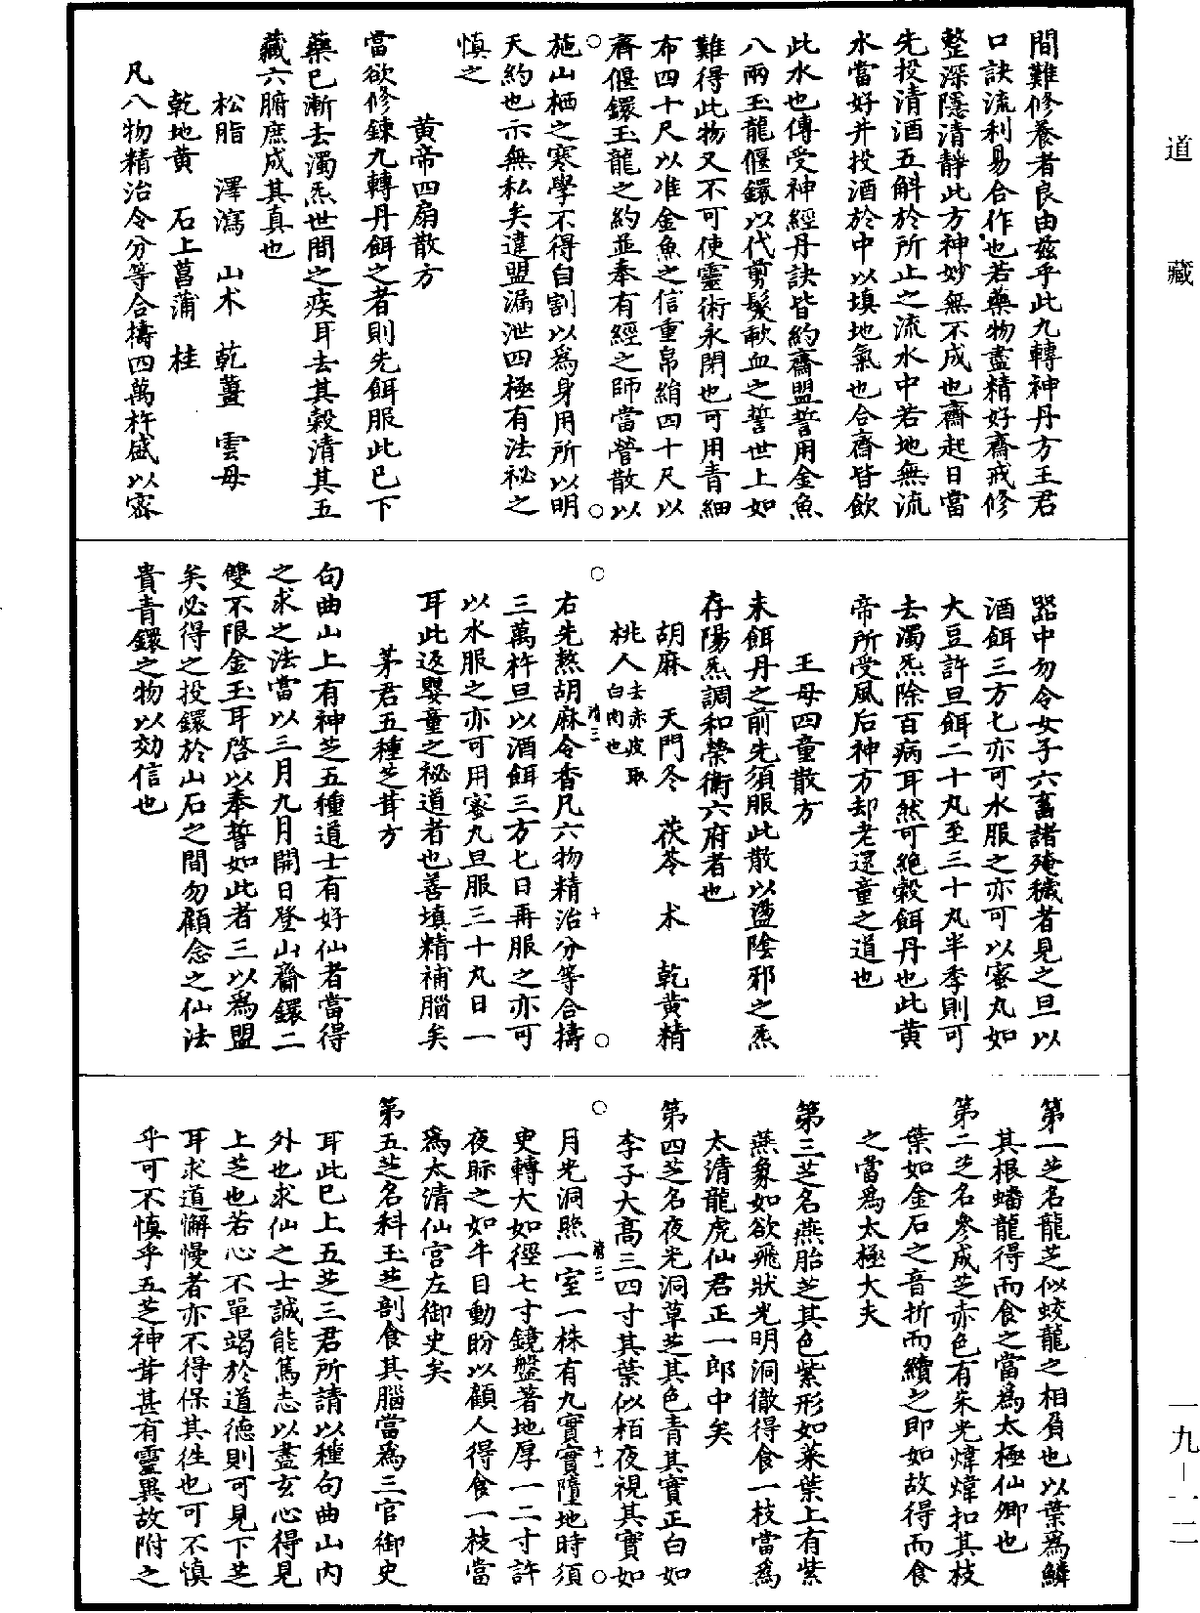 道藏
間難修養者良由茲乎此九轉神丹方王君
口訣流利易合作也若藥物盡精好齋戒修
整深隱清靜此方神妙無不成也齋起日當
先投清酒五斛於所止之流水中若地無流
水當好井投酒於中以填地氣也合齋皆飲
此水也傳受神經丹訣皆約齋盟誓用金魚
八兩玉龍偃鐶以代剪髮歃血之誓世上如
難得此物又不可使靈術永閉也可用青細
布四十尺以准金魚之信重帛絹四十尺以
齊偃鐶玉龍之約並奉有經之師當營散以
施山栖之寒學不得自割以為身用所以明
天約也示無私矣違盟漏泄四極有法祕之
慎之
黃帝四扇散方
當欲修鍊九轉丹餌之者則先餌服此已下
藥已漸去濁炁世間之疾耳去其穀清其五
藏六腑庶成其真也
松脂 澤瀉 山朮 乾薑 雲母
乾地黃 石上菖蒲 桂
凡八物精治令分等合擣四萬杵盛以密
器中勿令女子六畜諸殗穢者見之旦以
酒餌三方七亦可水服之亦可以蜜丸如
大豆許旦餌二十丸至三十丸半季則可
去濁炁除百病耳然可絕穀餌丹也此黃
帝所受風后神方却老還童之道也
王母四童散方
未餌丹之前先須服此散以盪陰邪之炁
存陽炁調和榮衛六府者也
胡麻 天門冬 茯苓 朮 乾黃精
桃人去赤皮取白肉也
清三 十
右先熬胡麻令香凡六物精治分等合擣
三萬杵旦以酒餌三方七日再服之亦可
以水服之亦可用蜜丸旦服三十丸日一
耳此返嬰童之秘道者也善填精補腦矣
茅君五種芝茸方
句曲山上有神芝五種道士有好仙者當得
之求之法當以三月九月開日登山齋鐶二
雙不限金玉耳啓以奉誓如此者三以為盟
矣必得之投鐶於山石之間勿顧念之仙法
貴青鐶之物以効信也
第一芝名龍芝似蛟龍之相負也以葉為鱗
其根蟠龍得而食之當為太極仙卿也
第二芝名參成芝赤色有朱光煒煒扣其枝
葉如金石之音折而續之即如故得而食
之當為太極大夫
第三芝名燕胎芝其色紫形如葵葉上有紫
燕象如欲飛狀光明洞徹得食一枝當為
太清龍虎仙君正一郎中矣
第四芝名夜光洞草芝其色青其實正白如
李子大高三四寸其葉似栢夜視其實如
清三 十一
月光洞照一室一株有九實實墮地時須
史轉大如徑七寸鏡盤著地厚一二寸許
夜眎之如牛目動盼以顧人得食一枝當
為太清仙官左御史矣
第五芝名科玉芝剖食其腦當為三官御史
耳此已上五芝三君所請以種句曲山內
外也求仙之士誠能篤志以盡玄心得見
上芝也若心不單竭於道德則可見下芝
耳求道懈慢者亦不得保其徃也可不慎
乎可不慎乎五芝神茸甚有靈異故附之
一九-一二